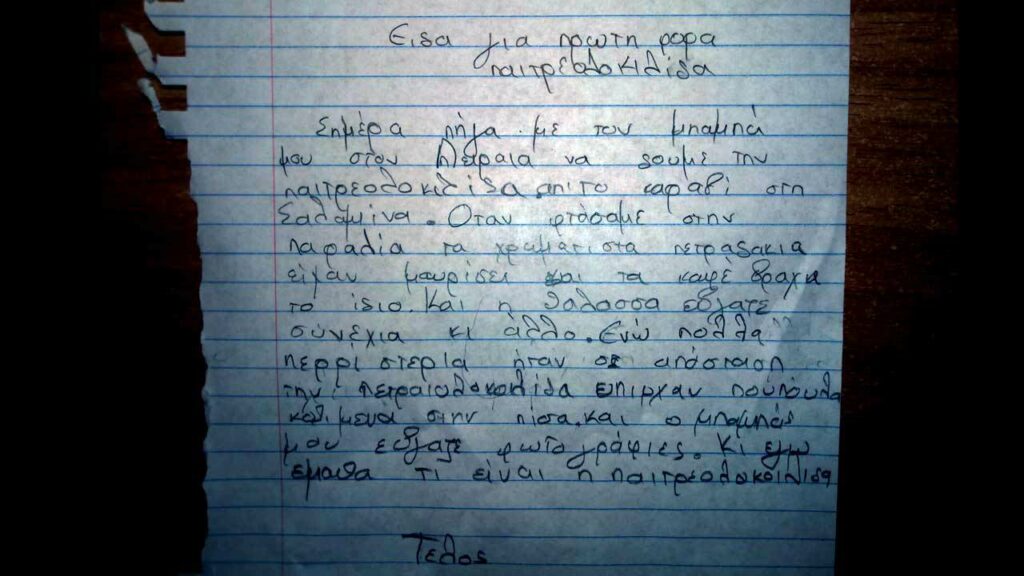 Ειδα για πρωτη φορα
παιτρέολοκιλίδα
Σημέρα πήγα με τον μπαμπά
μου στον Πειραια να δουμε την
παιτρεολοκιλίδα απι το καράβι στη
Σαλαμίνα. Οταν φτάσαμε στην
παραλία τα χρωμάτιστα πετραδακια
είχαν μαυρίσει και τα καφέ βραχια
το ίδιο. Και η θαλασσα εβγαζε
σύνέχια κι άλλο. Ενώ πολλα
περρι στερια ήταν σε απόσταση
την πετραιολοκολίδα επιρχαν πούπουλα
καθιμενα στην πίσα. και ο μπαμπάς
μου εβγαζε φωτογράφιες. Κι εγω
εμαθα τι είναι η παιτρεολοκοιλιδα
Τελος